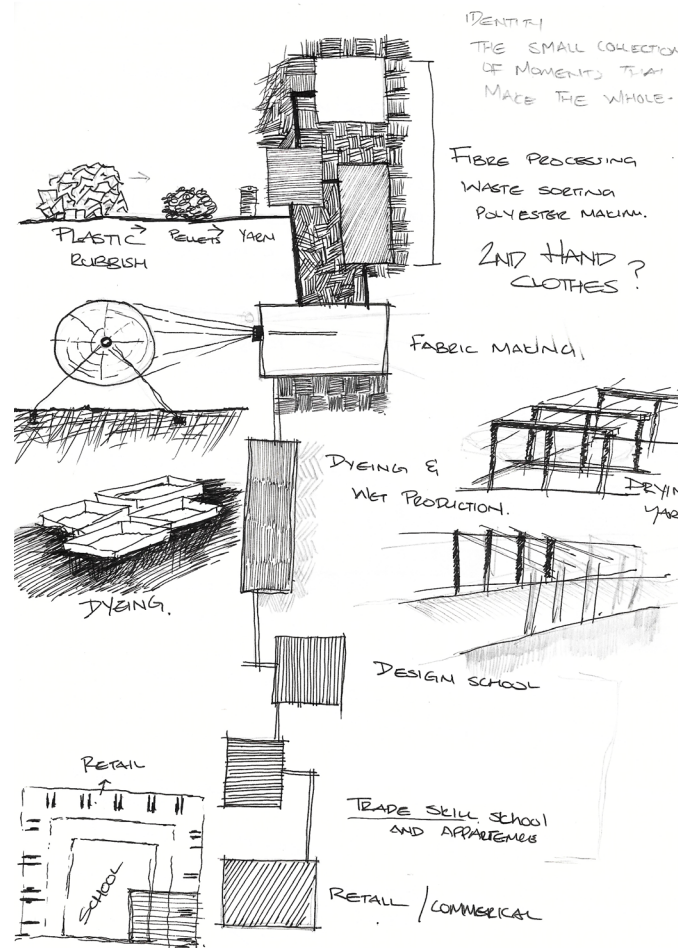 IDENTITY
THE SMALL COLLECTION
OF MOMENTS THAT
MAKE THE WHOLE.
FIBRE PROCESSING
WASTE SORTING
POLYESTER MAKING.
2ND HAND
CLOTHES?
PLASTIC
RUBBISH
PELLETS
YARN
FABRIC MAKING
DYEING &
WET PRODUCTION.
DRYIN
YAR
DYEING.
DESIGN SCHOOL
RETAIL
TRADE SKILL SCHOOL
AND APPARTEMES
SCHOOL
RETAIL / COMMERICAL